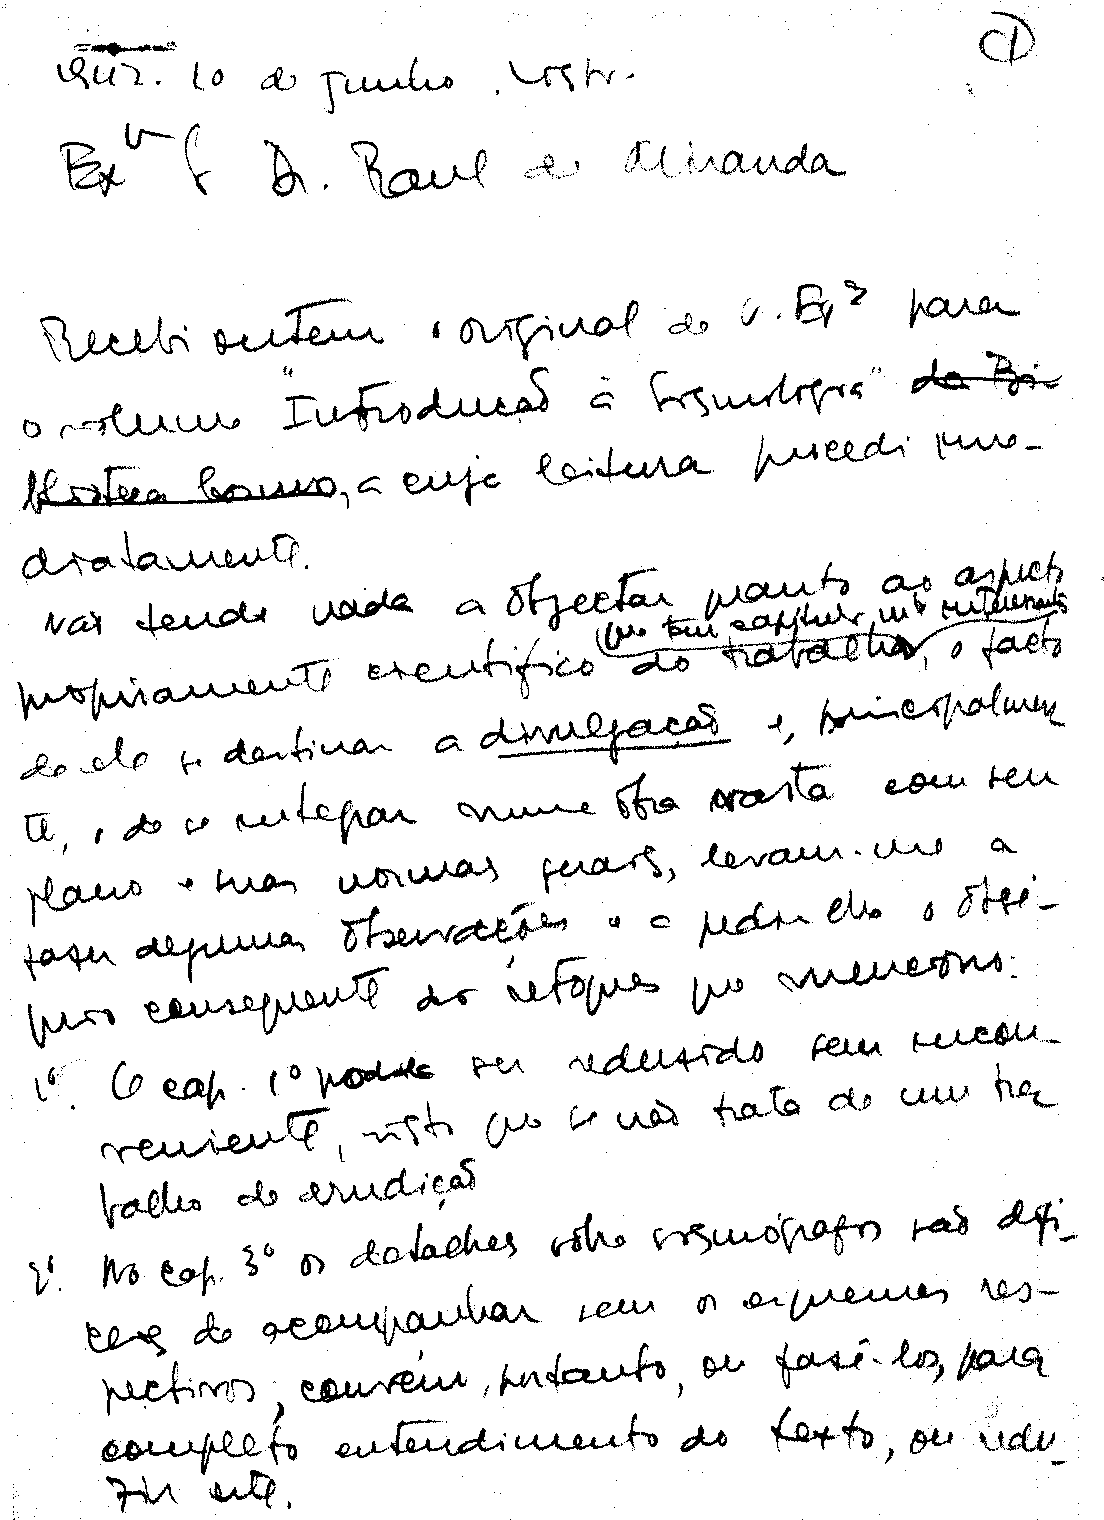 1
1942. 10 de Junho. Lisboa.
Exmo Sr Dr. Raul de Miranda
Recebi ontem o original de V. Exª para
o volume "Introdução à Sismologia" da Bi-
blioteca Cosmos, a cuja leitura procedi ime-
diatamente.
Não tendo nada a objectar quanto ao aspecto
que tem capítulos mto interessantes
propriamente científico do trabalho, o facto
de ele se destinar a divulgação e, principalmen
te, o de se integrar numa obra vasta com seu
plano e suas normas gerais, levam-me a
fazer algumas observações e a pedir-lhe o obsé-
quio consequente dos retoques que menciono:
1º. O cap. 1º pode ser reduzido sem incon-
veniente, visto que se não trata de um tra
balho de erudição
2º. No cap. 3º os detalhes sôbre sismógrafos são difí-
ceis de acompanhar sem os esquemas res-
pectivos; convém, portanto, ou fazê-los, para
completo entendimento do texto, ou redu-
zir este.